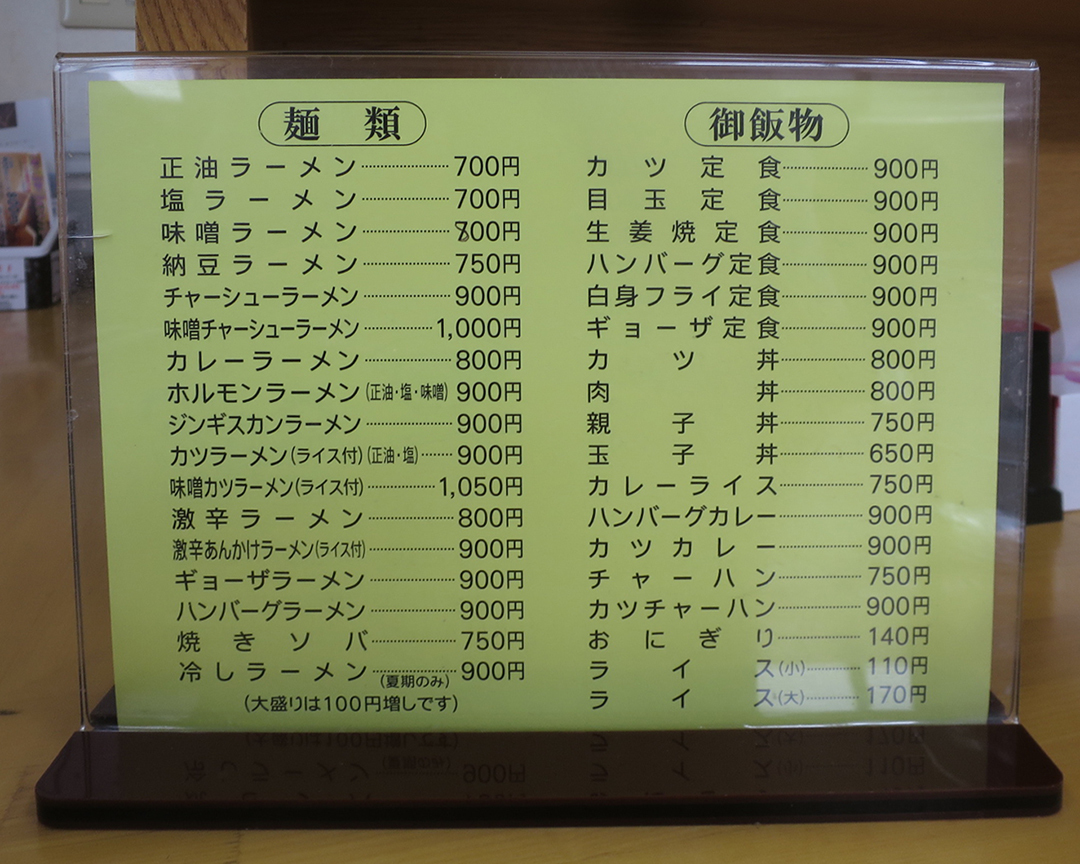 麺類
正油ラーメン…………700円
塩ラーメン…………700円
味噌ラーメン…………700円
納豆ラーメン…………750円
チャーシューラーメン…………900円
味噌チャーシューラーメン…………1,000円
カレーラーメン…………800円
ホルモンラーメン(正油・塩・味噌)900円
ジンギスカンラーメン…………900円
カツラーメン(ライス付)(正油・塩)……900円
味噌カツラーメン(ライス付)…………1,050円
激辛ラーメン…………800円
激辛あんかけラーメン(ライス付)…………900円
ギョーザラーメン…………900円
ハンバーグラーメン…………900円
焼きソバ…………750円
冷しラーメン…………900円
(夏期のみ)
(大盛りは100円増しです)
御飯物
カツ定食…………900円
目玉定食…………900円
生姜焼定食…………900円
ハンバーグ定食…………900円
白身フライ定食…………900円
ギョーザ定食…………900円
カツ丼…………800円
肉丼…………800円
親子丼…………750円
玉子丼…………650円
カレーライス…………750円
ハンバーグカレー…………900円
カツカレー…………900円
チャーハン…………750円
カツチャーハン…………900円
おにぎり…………140円
ライス(小)…………110円
ライス(大)…………170円